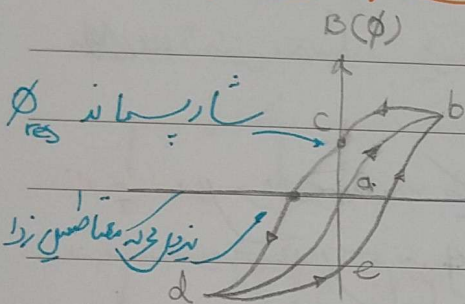 B(φ)
b
شار پسماند φ res
c
a
نیروی محرکه مغناطیس زدا
d
e